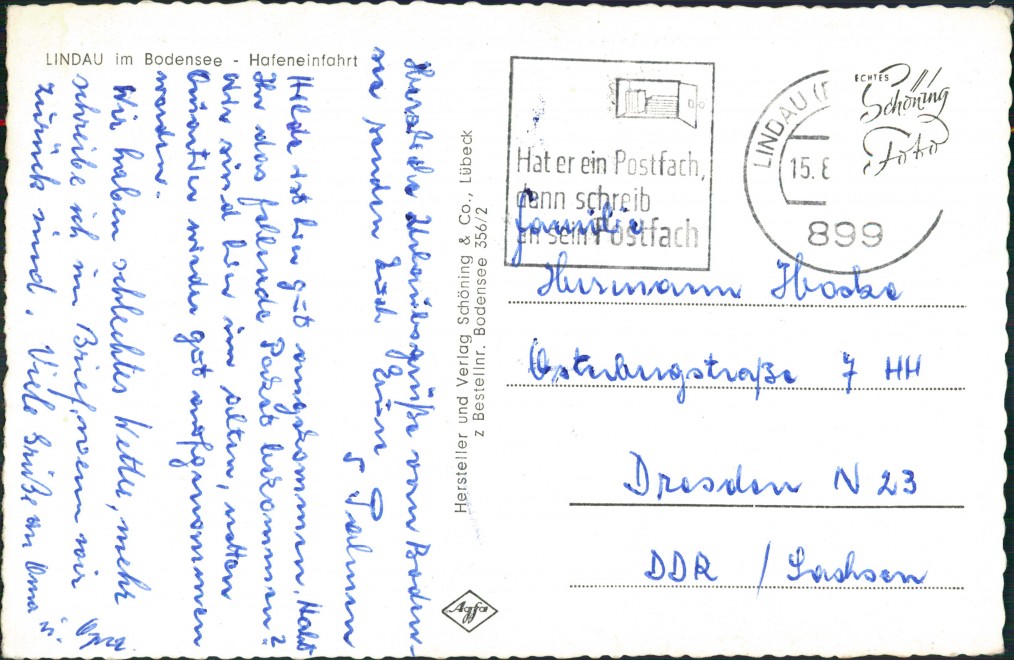 LINDAU im Bodensee - Hafeneinfahrt
Herzliche Urlaubsgrüße vom Boden-
see senden Euch Eure
5 Palman
Hilde ist hier gut angekommen, Habt
Ihr das fehlende Paket bekommen?
Wir sind hier im alten, netten
Quartier wieder gut aufgenommen
worden.
Wir haben schlechtes Wetter, mehr
schreibe ich im Brief, wenn wir
zurück sind. Viele Grüße an Oma u.
Opa
Hersteller und Verlag Schöning & Co., Lübeck
z Bestellnr. Bodensee 356/2
Agfa
Hat er ein Postfach,
dann schreib
an sein Postfach
LINDAU (
15.8
899
ECHTES
Schöning
Foto
Familie
Hermann
Osterbergstraße 7 HH
Dresden N 23
DDR / Sachsen